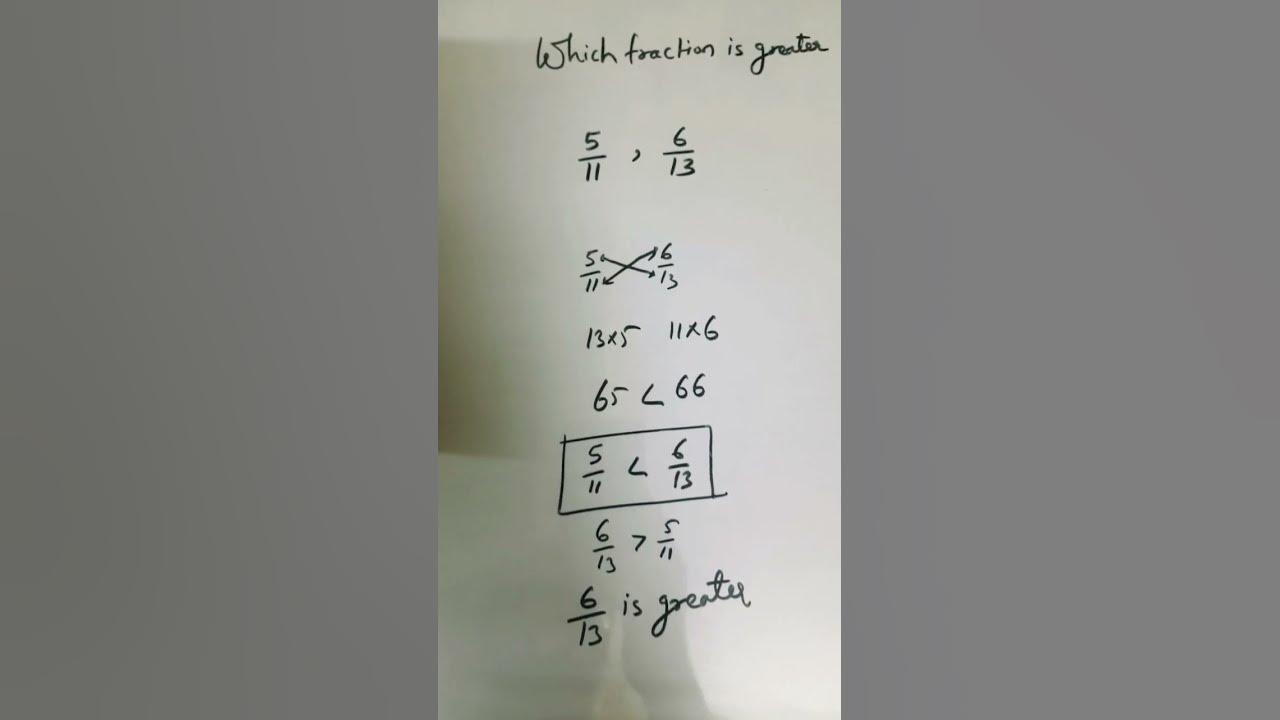 Which fraction is greater
5/11 , 6/13
5/11 6/13
13×5 11×6
65 < 66
5/11 < 6/13
6/13 > 5/11
6/13 is greater